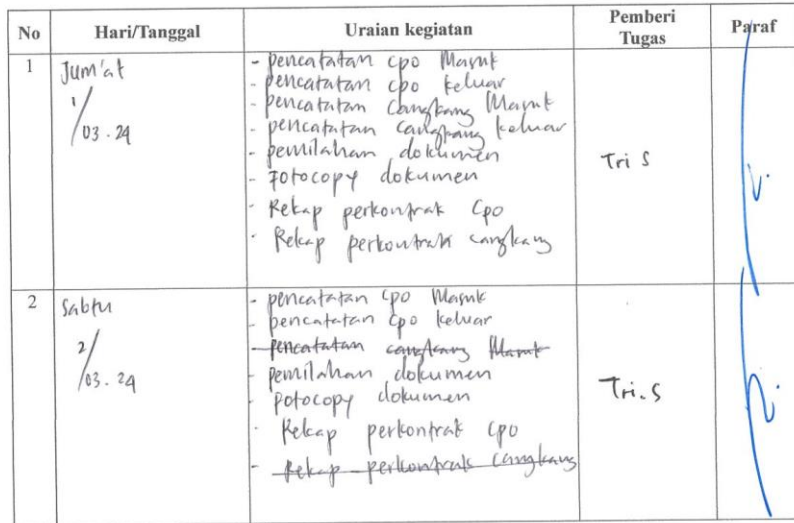 No Hari/Tanggal Uraian kegiatan Pemberi Tugas Paraf
1 Jum'at 1/03.24
- pencatatan cpo Masuk
- pencatatan cpo keluar
- pencatatan cangkang Masuk
- pencatatan cangkang keluar
- pemilahan dokumen
- Fotocopy dokumen
- Rekap perkontrak Cpo
- Rekap perkontrak cangkang
Tri S
2 Sabtu 2/03.24
- pencatatan cpo Masuk
- pencatatan cpo keluar
- pencatatan cangkang Masuk
- pemilahan dokumen
- potocopy dokumen
- Rekap perkontrak cpo
- Rekap perkontrak cangkang
Tri.S